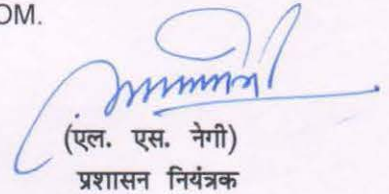 OM.
(एल. एस. नेगी)
प्रशासन नियंत्रक